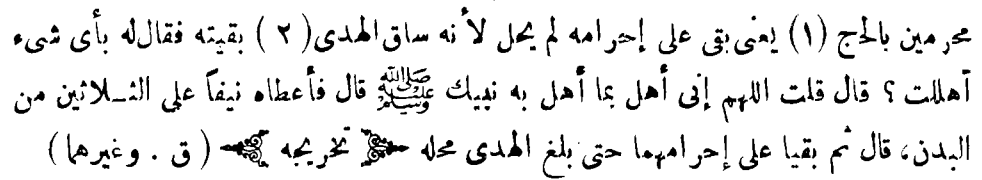 محرمين بالحج (١) يعنى بقى على إحرامه لم يحل لأنه ساق الهدى (٢) بقيته فقال له بأى شىء
أهللت ؟ قال قلت اللهم إنى أهل بما أهل به نبيك ﷺ قال فأعطاه نيفاً على الثـلاثين من
البدن، قال ثم بقيا على إحرامهما حتى بلغ الهدى محله تخريجه (ق . وغيرهما)